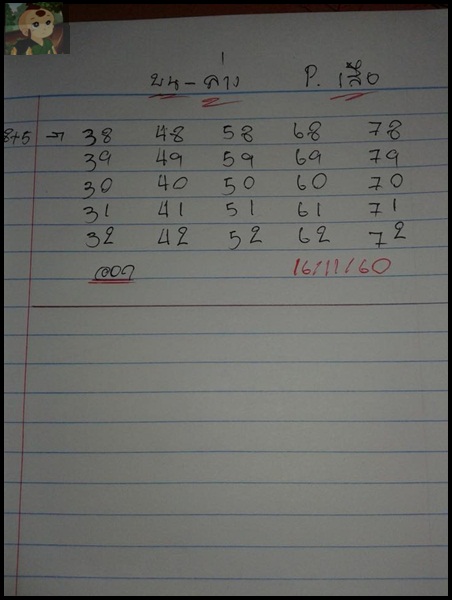 บน-ล่าง P. เสือ
8+5 → 38 48 58 68 78
39 49 59 69 79
30 40 50 60 70
31 41 51 61 71
32 42 52 62 72
16/11/60